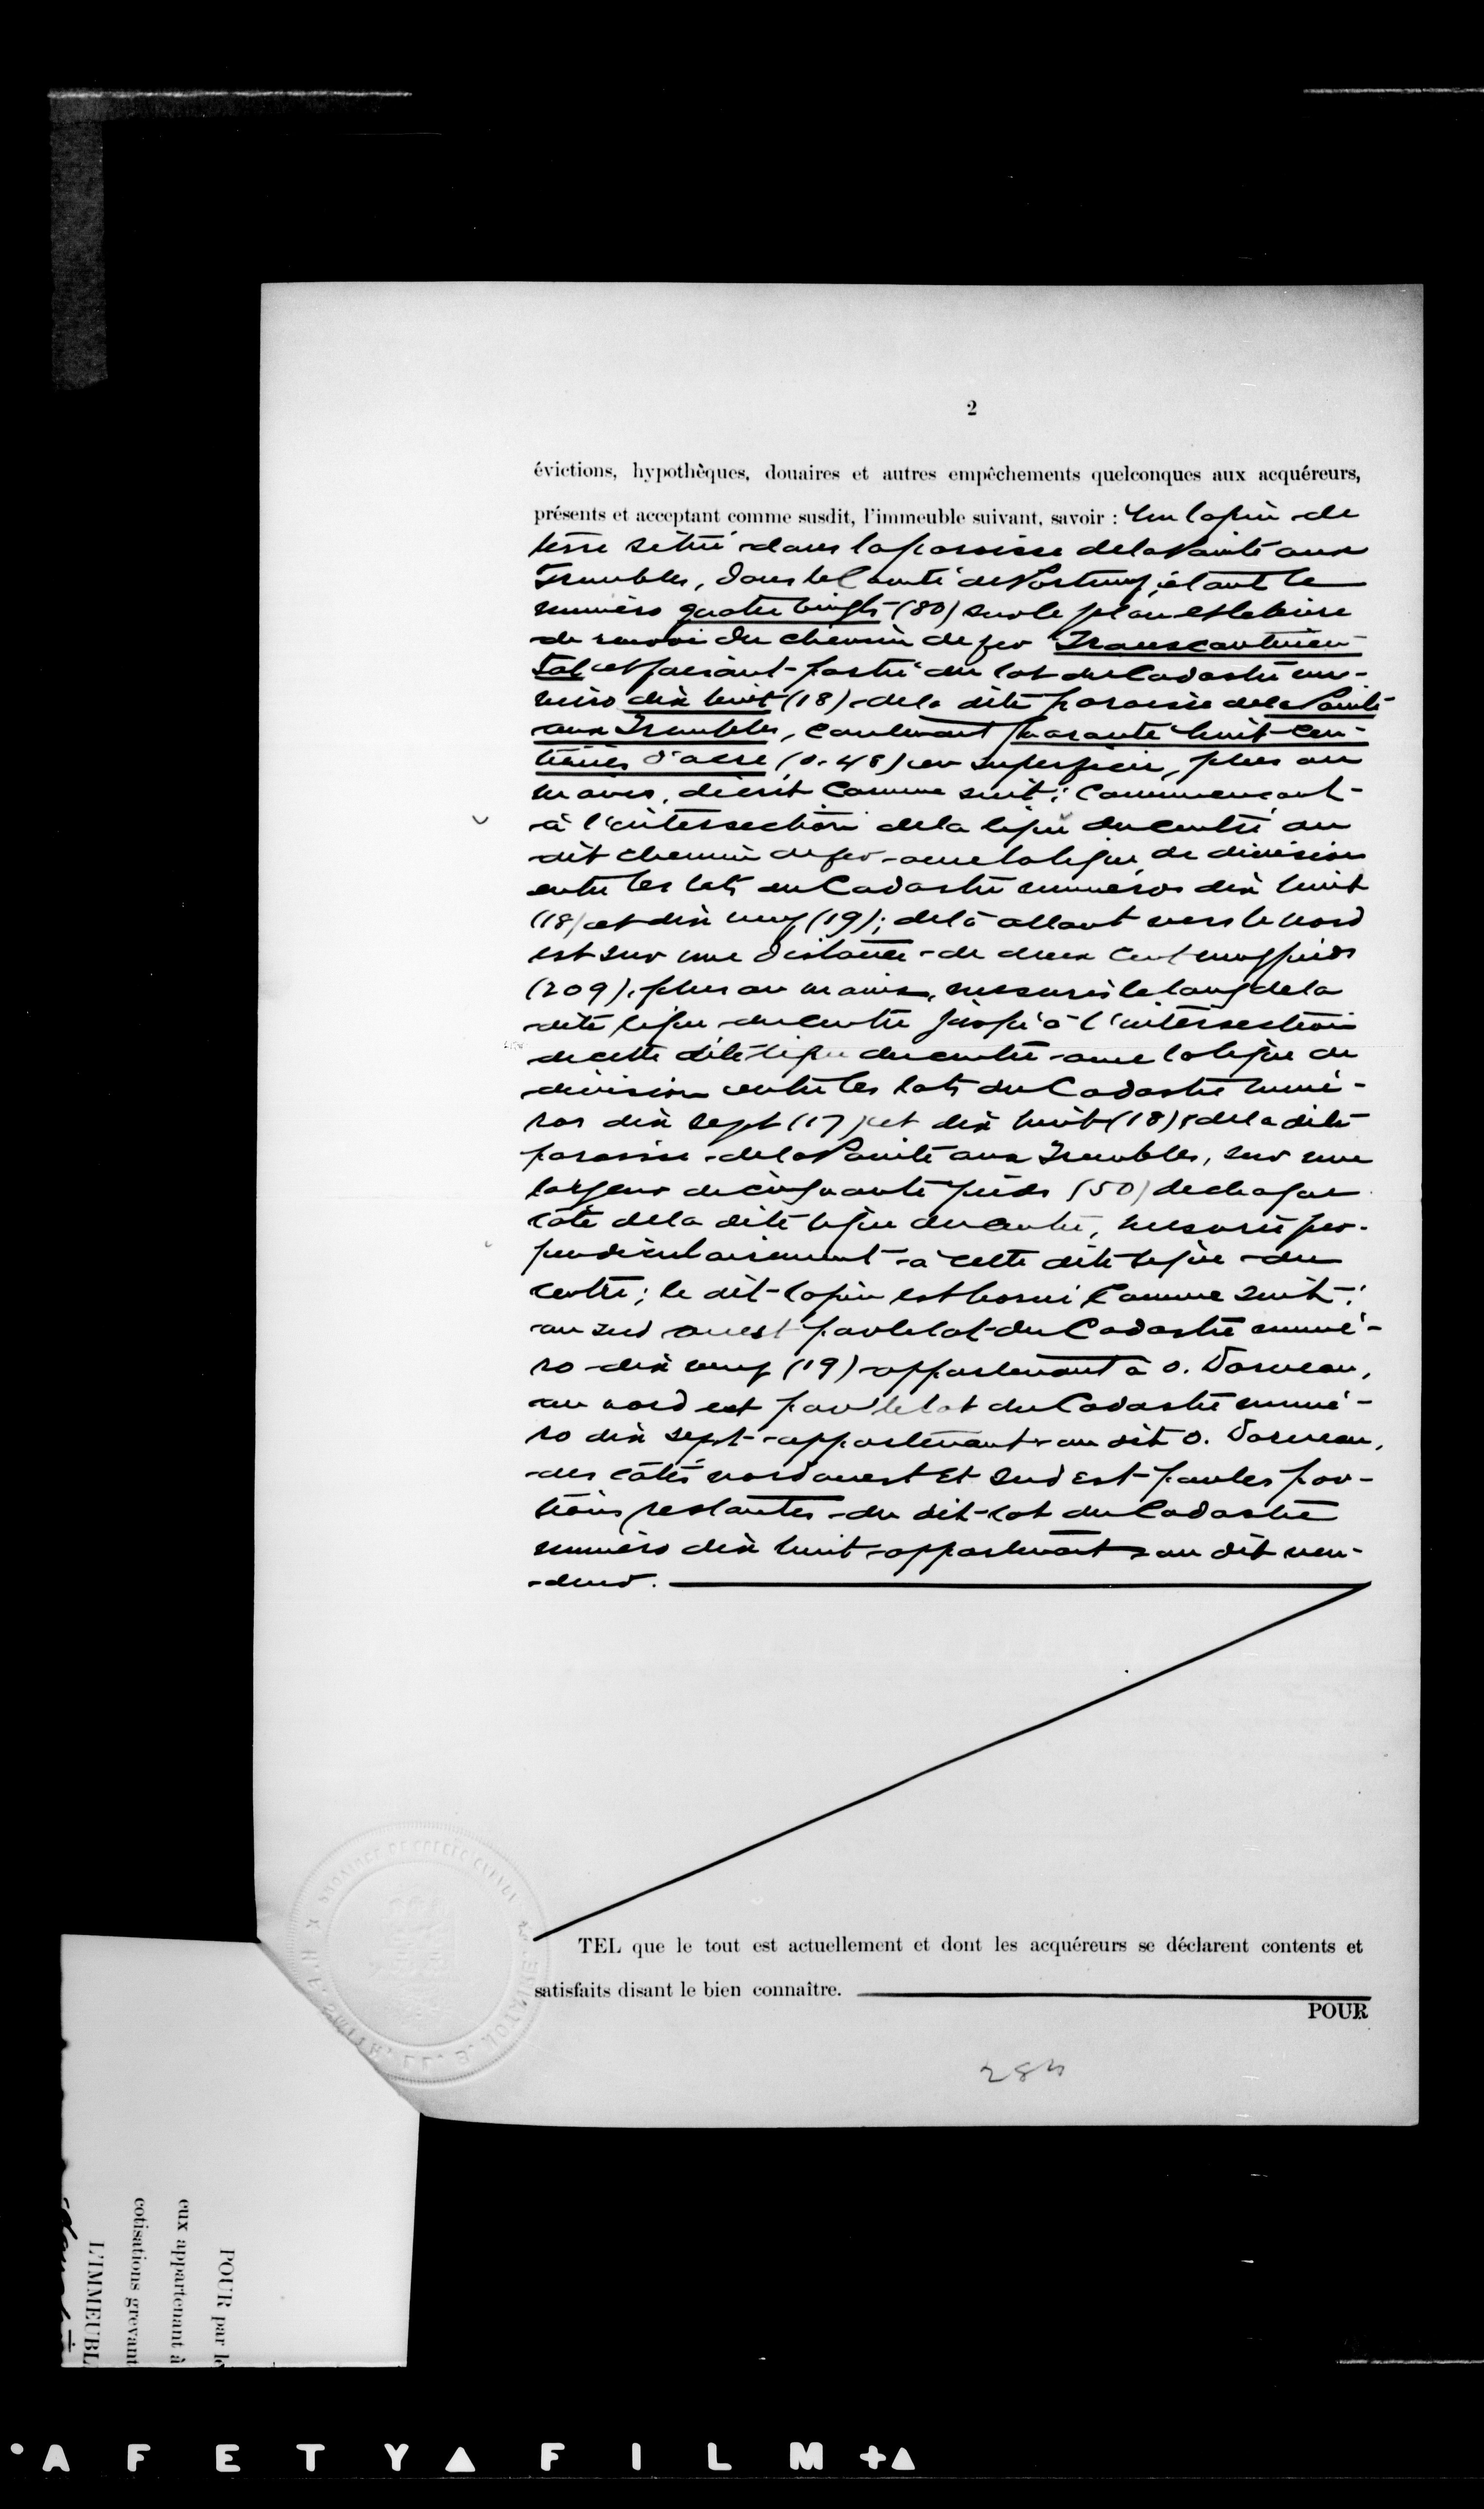 2
évictions, hypothèques, douaires et autres empêchements quelconques aux acquéreurs,
présents et acceptant comme susdit, l'immeuble suivant, savoir : Un lopin de
terre situé dans la paroisse de la Pointe aux
Trembles, dans le Comté de Portneuf, étant le
numéro quatre vingts (80) sur le plan et le livre
de renvoi du chemin de fer Transcontinen-
tal et faisant partie du lot du Cadastre nu-
méro dix huit (18) de la dite paroisse de la Pointe
aux Trembles, contenant quarante huit cen-
tièmes d'acre (0.48) en superficie, plus ou
moins, décrit comme suit: Commençant
à l'intersection de la ligne du centre du
dit chemin de fer avec la ligne de division
entre les lots du Cadastre numéros dix huit
(18) et dix neuf (19); de là allant vers le nord
est sur une distance de deux cent neuf pieds
(209), plus ou moins, mesurés le long de la
dite ligne du centre jusqu'à l'intersection
de cette dite ligne du centre avec la ligne de
division entre les lots du Cadastre numé-
ros dix sept (17) et dix huit (18) de la dite
paroisse de la Pointe aux Trembles, sur une
largeur de cinquante pieds (50) de chaque
côté de la dite ligne du centre, mesurée per-
pendiculairement à cette dite ligne du
centre; le dit lopin est borné comme suit:
au sud ouest par le lot du Cadastre numé-
ro dix neuf (19) appartenant à O. Darveau,
au nord est par le lot du Cadastre numé-
ro dix sept appartenant au dit O. Darveau,
des côtés nord ouest et sud est par les por-
tions restantes du dit lot du Cadastre
numéro dix huit appartenant au dit ven-
deur.
TEL que le tout est actuellement et dont les acquéreurs se déclarent contents et
satisfaits disant le bien connaître.
POUR
POUR par le
eux appartenant à
cotisations grevant
L'IMMEUBL
AFETY FILM